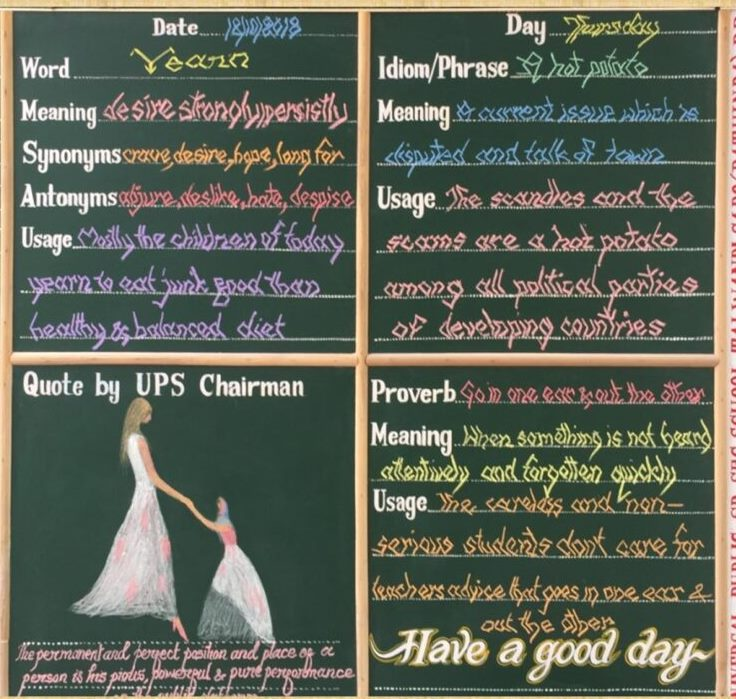 Date 18/10/2018
Word Yearn
Meaning desire strongly, persistly
Synonyms crave, desire, hope, long for
Antonyms abjure, deslike, hate, despise
Usage Mostly the children of today
yearn to eat junk food than
healthy & balanced diet
Day Thursday
Idiom/Phrase A hot potato
Meaning A current issue which is
disputed and talk of town
Usage The scandles and the
scams are a hot potato
among all political parties
of developing countries
Quote by UPS Chairman
The permanent and perfect position and place of a
person is his pious, powerful & pure performance
Proverb Go in one ear & out the other
Meaning When something is not heard
attentively and forgotten quickly
Usage The careless and non-
serious students dont care for
teachers advice that goes in one ear &
out the other
Have a good day